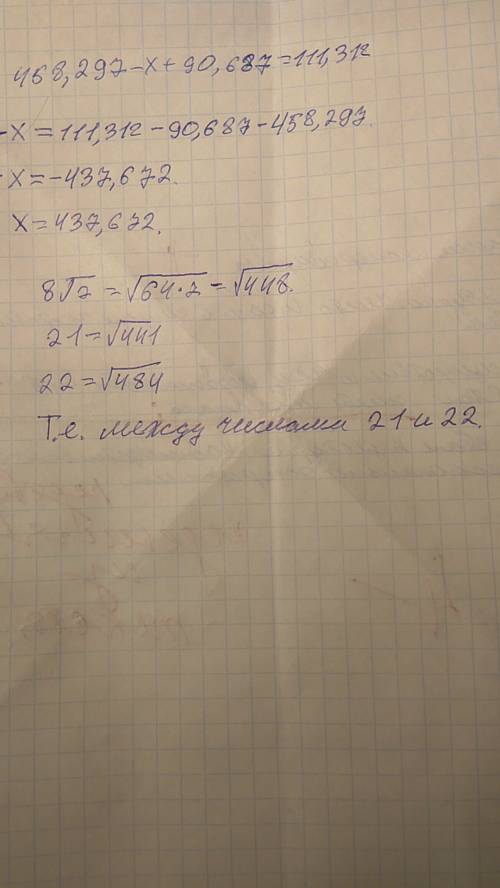 468,297-x+90,687=111,312
-x=111,312-90,687-458,297.
-x=-437,672.
x=437,672.
8√7=√64·7=√448.
21=√441
22=√484
Т.е. между числами 21 и 22.